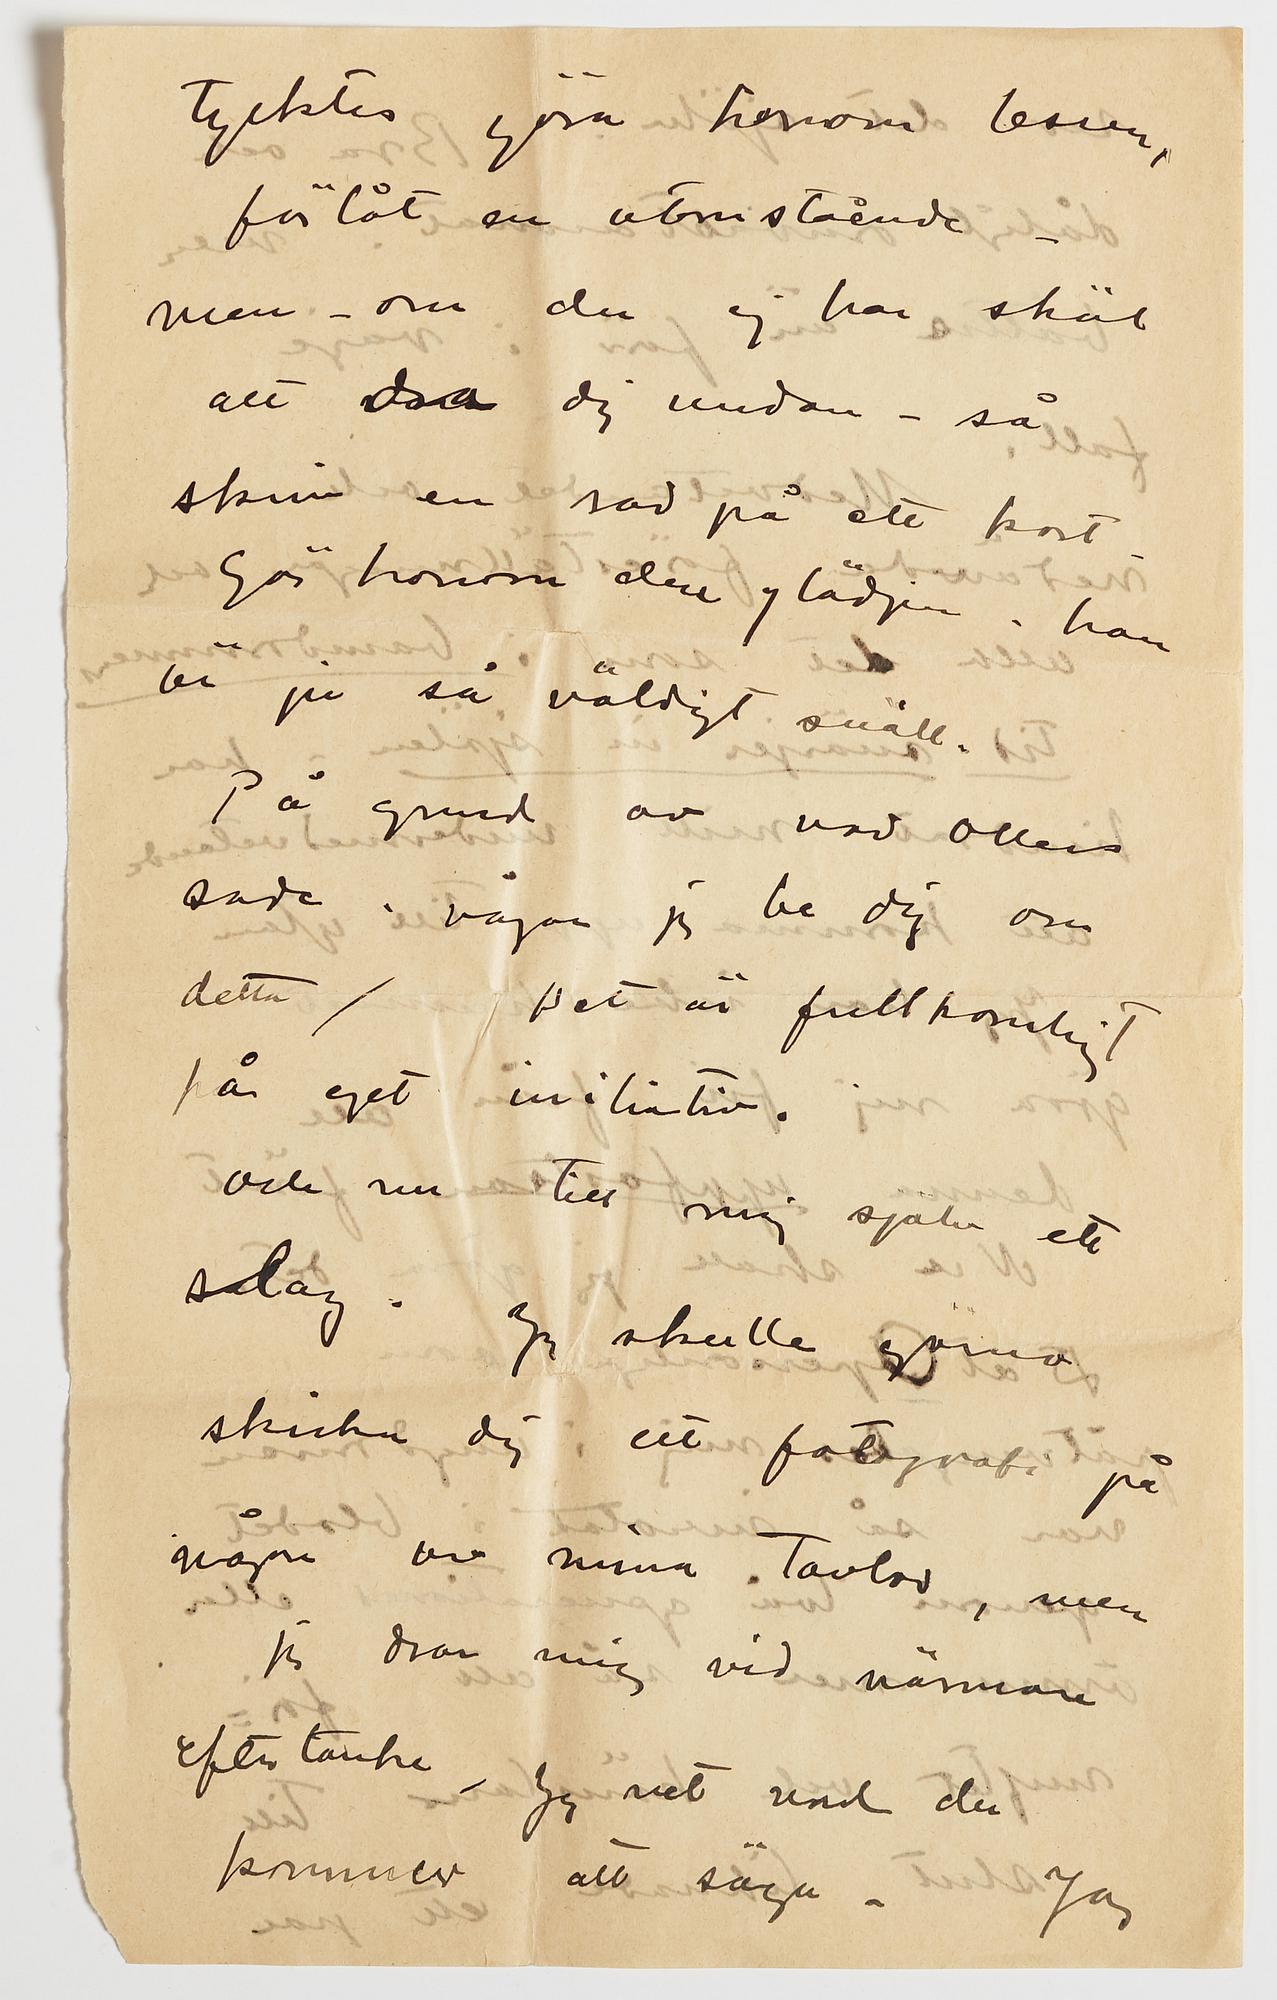 tycktes göra honom lessen,
förlåt en utomstående –
men – om du ej har skäl
att dra dig undan – så
skriv en rad på ett kort –
Gör honom den glädjen. han
är ju så väldigt snäll.
På grund av vad
sade. vågar jg be dig om
detta / Det är fullkomligt
på eget initiativ.
och nu till mig själv ett
slag. Jg skulle gärna
skicka dig ett fotografi på
någon av mina tavlor, men
jg drar mig vid närmare
eftertanke – Jg vet vad du
kommer att säga – Jag